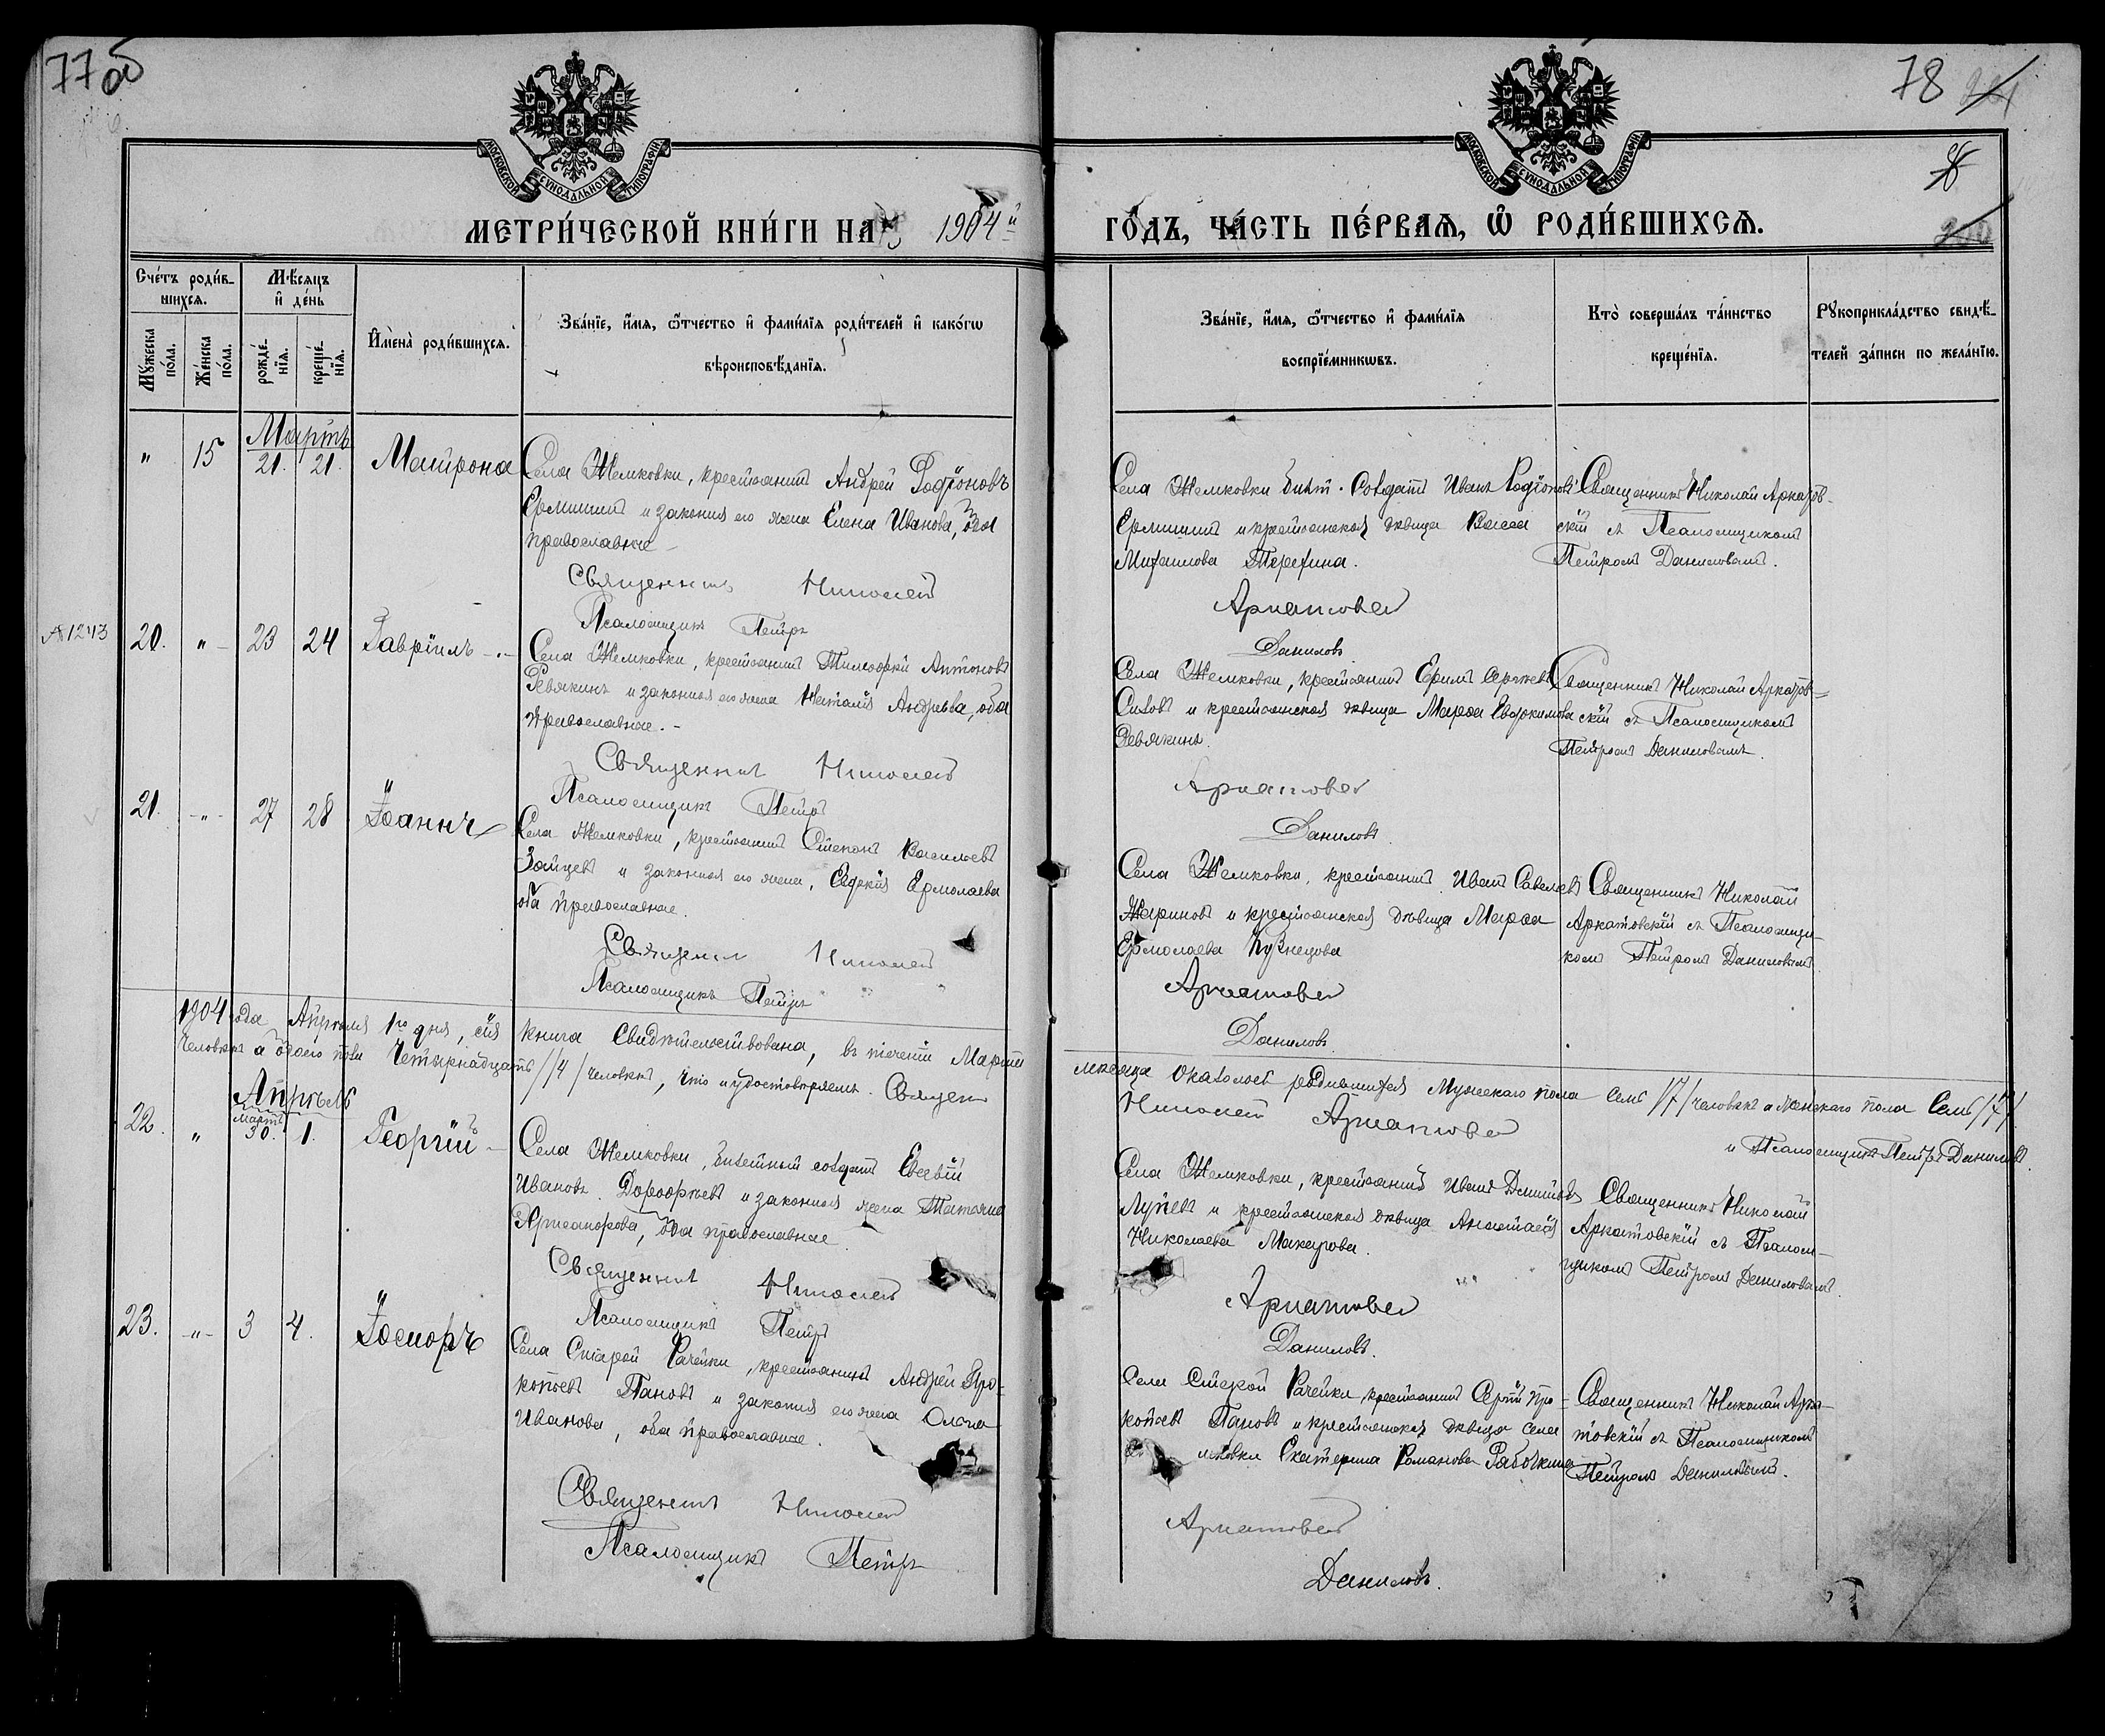 77 об
78
МОСКОВСКОЙ СѴНОДАЛЬНОЙ ТИПОГРАФІИ
МОСКОВСКОЙ СѴНОДАЛЬНОЙ ТИПОГРАФІИ
МЕТРИ́ЧЕСКОЙ КНИ́ГИ НА 1904й
ГО́ДЪ, ЧА́СТЬ ПЕ́РВАѦ, Ѡ҆ РОДИ́ВШИХСѦ.
Сче́тъ роди́в-
шихсѧ.
Мѣ́сяцъ
и҆ де́нь
Мꙋ́жеска по́ла.
Же́нска по́ла.
рожде́-
нїѧ.
креще́-
нїѧ.
И҆мена̀ роди́вшихсѧ.
Зва́нїе, и҆́мѧ, ѻ҆́тчество и҆ фами́лїѧ роди́телей и҆ како́гѡ
вѣроисповѣ́данїѧ.
Зва́нїе, и҆́мѧ, ѻ҆́тчество и҆ фами́лїѧ
воспрїе́мникѡвъ.
Кто̀ соверша́лъ та́инство
креще́нїѧ.
Рꙋкоприкла́дство свидѣ́-
телей за́писи по жела́нїю.
Мартъ
" 15 21. 21. Матрона
Села Жемковки, крестьянинъ Андрей Родіоновъ
Ермишинъ и законная его жена Елена Иванова, оба
православные
Священникъ Николай
Псаломщикъ Петръ
Села Жемковки билет. Солдатъ Иванъ Родіоновъ
Ермишинъ и крестьянская дѣвица Васса
Михаилова Терехина.
Аркатовскій
Даниловъ
Священникъ Николай Аркатов-
скій съ Псаломщикомъ
Петромъ Даниловымъ.
№ 1243
20. " 23 24 Гавріилъ
Села Жемковки, крестьянинъ Тимофей Антоновъ
Ревякинъ и законная его жена Наталія Андреева, оба
православные.
Священникъ Николай
Псаломщикъ Петръ
Села Жемковки, крестьянинъ Ефимъ Сергѣевъ
Сизовъ и крестьянская дѣвица Марѳа Евдокимова
Ревякина.
Аркатовскій
Даниловъ.
Священникъ Николай Аркатов-
скій съ Псаломщикомъ
Петромъ Даниловымъ.
21. " 27 28 Іоаннъ
Села Жемковки, крестьянинъ Степанъ Васильевъ
Зайцевъ и законная его жена, Евдокія Ермолаева
оба православные.
Священникъ Николай
Псаломщикъ Петръ
Села Жемковки, крестьянинъ Иванъ Савельевъ
Жариновъ и крестьянская дѣвица Марѳа
Ермолаева Кузнецова
Аркатовскій
Даниловъ.
Священникъ Николай
Аркатовскій съ Псаломщи-
комъ Петромъ Даниловымъ
1904 года Апрѣля 1го дня, сія книга Свидѣтельствована, въ теченіи Марта
мѣсяца оказалось родившихся Мужескаго пола семь /7/ человѣкъ а женскаго пола Семь /7/
человѣкъ а обоего пола Четырнадцать /14/ человѣкъ, что и удостовѣряемъ. Священ
Николай Аркатовскій
и Псаломщикъ Петръ Даниловъ.
Апрѣль
Мартъ
22. " 30. 1. Георгій
Села Жемковки, билетный солдатъ Евсевій
Ивановъ Дороѳѣевъ и законная жена Татьяна
оба православные
Священникъ Николай
Псаломщикъ Петръ
Села Жемковки, крестьянинъ Иванъ
и крестьянская дѣвица Анастасія
Николаева Макарова.
Аркатовскій
Даниловъ.
Священникъ Николай
Аркатовскій съ Псалом-
щикомъ Петромъ Даниловымъ.
23. " 3 4. Іосифъ
Села Старой Рачейки, крестьянинъ Андрей Про-
копьевъ Пановъ и законная его жена Ольга
Иванова, оба православные.
Священникъ Николай
Псаломщикъ Петръ
Села Старой Рачейки крестьянинъ Сергій Про-
копьевъ Пановъ и крестьянская дѣвица села
мковки Екатерина Романова Рабочкина
Аркатовскій
Даниловъ.
Священникъ Николай Арка-
товскій съ Псаломщикомъ
Петромъ Даниловымъ.